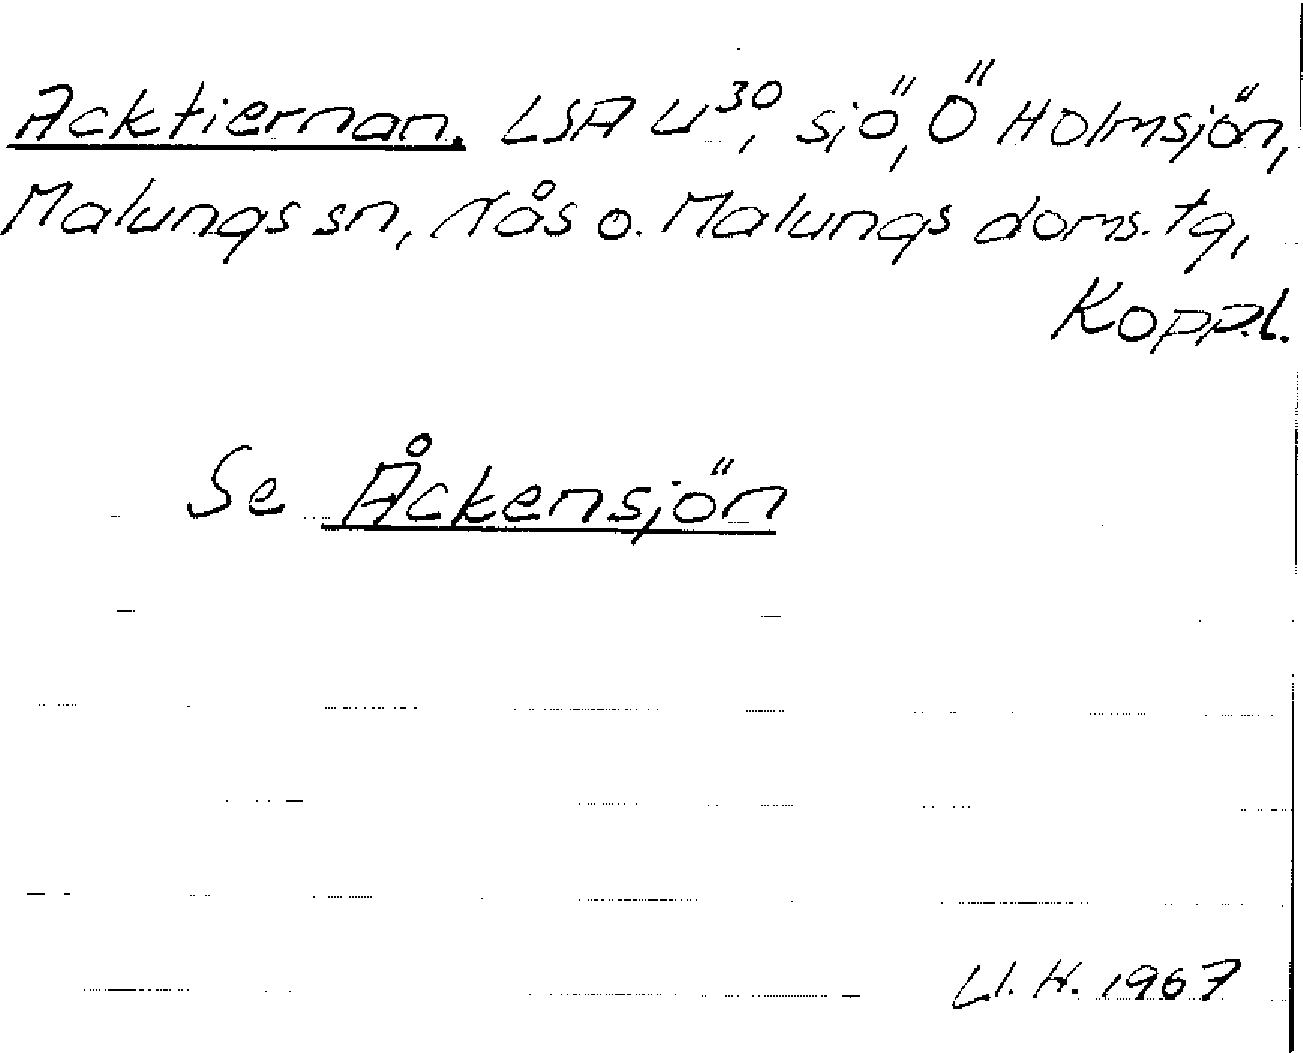 Acktiernan. LSA U30, sjö, Ö Holmsjön,
Malungs sn, Nås o. Malungs doms. tg,
Kopp.l.
Se Åckensjön
Ll. K. 1967